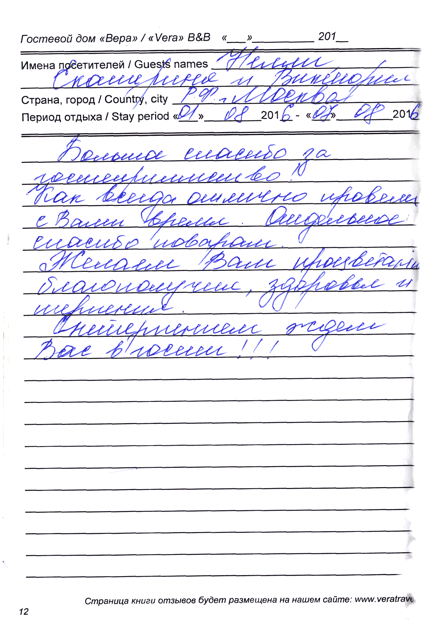 Гостевой дом «Вера» / «Vera» B&B «___»__________ 201__
Имена посетителей / Guests names
Екатерина и Виктория
Страна, город / Country, city РФ, Москва
Период отдыха / Stay period «01» 08 2016 - «07» 08 2016
Большое спасибо за
гостеприимство
Как всегда отлично провели
с Вами время. Отдельное
спасибо поварам.
Желаем Вам процветания
благополучия, здоровья и
терпения.
С нетерпением ждем
Вас в гости!!!
Страница книги отзывов будет размещена на нашем сайте: www.veratrave
12